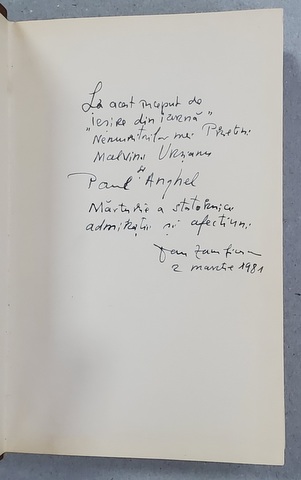 La acest început de
"ieșire din iarnă"
Nemuritorilor mei Prieteni
Malvina Urșianu
și
Paul Anghel
Mărturie a statornicei
admirații și afecțiuni
Dan Zamfirescu
2 martie 1981